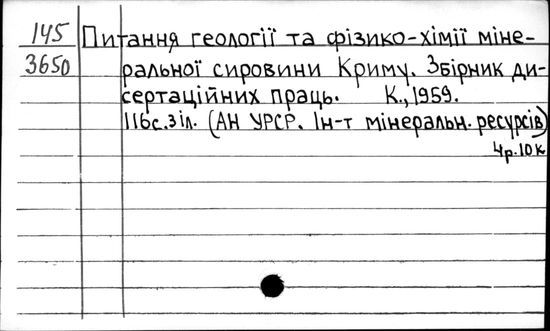 145 Питання геології та фізико-хімії міне-
3650 ральної сировини Криму. Збірник ди-
сертаційних праць. К., 1959.
116с. з іл. (АН УРСР. Ін-т мінеральн. ресурсів)
4р. 10к